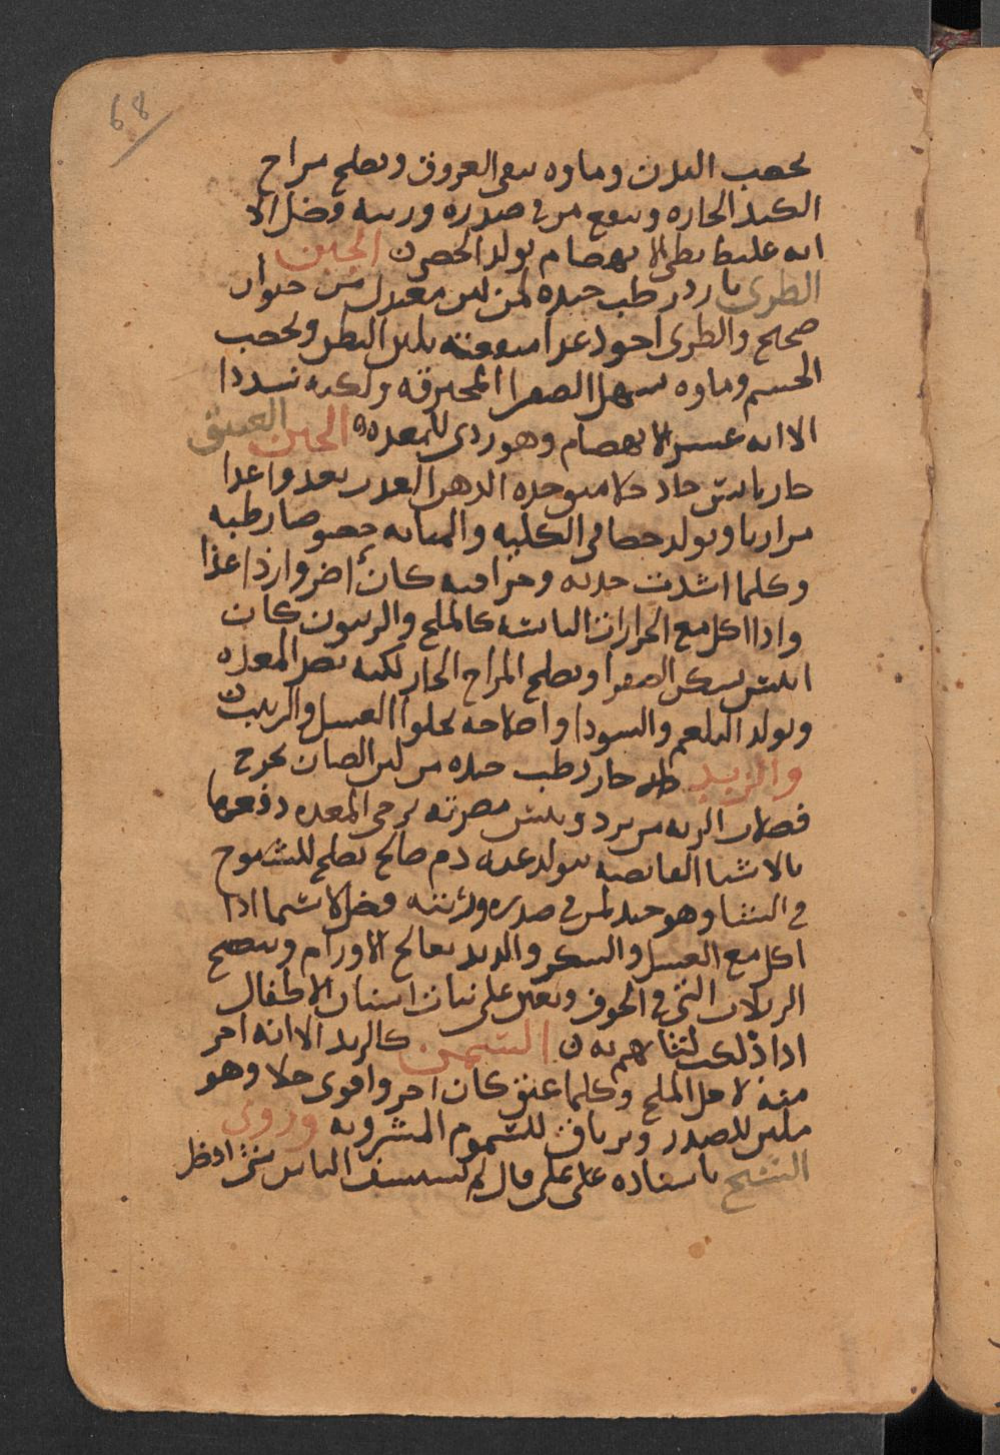 68
يخصب البدن وماوه ينقى العروق ويصلح مزاج
الكبد الحاره وينفع من في صدره وريته فضل الا
انه غليظ بطى الانهضام يولد الحصى الجبن
الطرى بارد رطب جيده لمن لبن معتدل من حيوان
صحيح والطرى اجود غدا منفعته يلين البطن ويخصب
الجسم وماوه يسهل الصفرا المحترقه ولكنه سددا
الا انه عسر الانهضام وهو ردى للمعده الجبن العتيق
حار يابس حاد جلا جيده الدهن يغدوا غدا
مراريا ويولد حصا في الكليه والمثانه خصوصا رطبه
وكلما اشتدت حدته وحرافته كان اضر واردا غذا
واذا اكل مع الحرارات اليابسه كالملح والزيتون كان
ايبس يسكن الصفرا ويصلح المزاج الحار لكنه يضر المعده
ويولد البلغم والسودا واصلاحه بحلوا العسل والزبيب
والزبد حار رطب جيده من لبن الضان يخرج
فضلات الريه من برد ويبس مضرته يرخى المعده دفعها
بالاشيا القابضه يتولد عنه دم صالح يصلح للشيوخ
في الشتا وهو جيد لمن في صدره ورئته فضل لا سيما اذا
اكل مع العسل والسكر والزبد يعالج الاورام وينضج
النزلات التي في الجوف ويعين على نبات اسنان الاطفال
اذا ذلكت لثاهم به السمن كالزبد الا انه احر
منه لاجل الملح وكلما عتق كان احر واقوى جلا وهو
ملين للصدر وترياق للسموم المشروبه وروى
الشيخ باسناده على على قال لم يستشف الناس بشي افضل